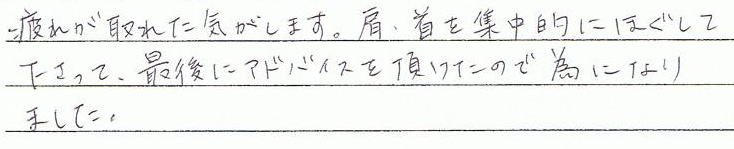 疲れが取れた気がします。肩、首を集中的にほぐして
下さって、最後にアドバイスを頂けたので為になり
ました。